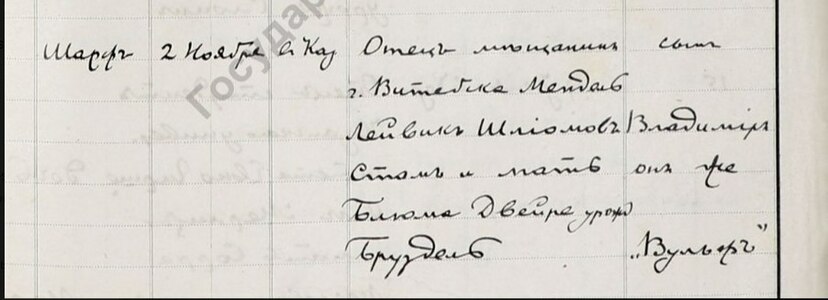 Шарфъ 2 Ноября Отецъ мѣщанинъ сынъ
г. Витебска Мендель
Лейвикъ Шліомовъ Владиміръ
Стамъ и мать онъ же
Блюма Двейре урожд
Бруздель „Вульфъ“
Государ